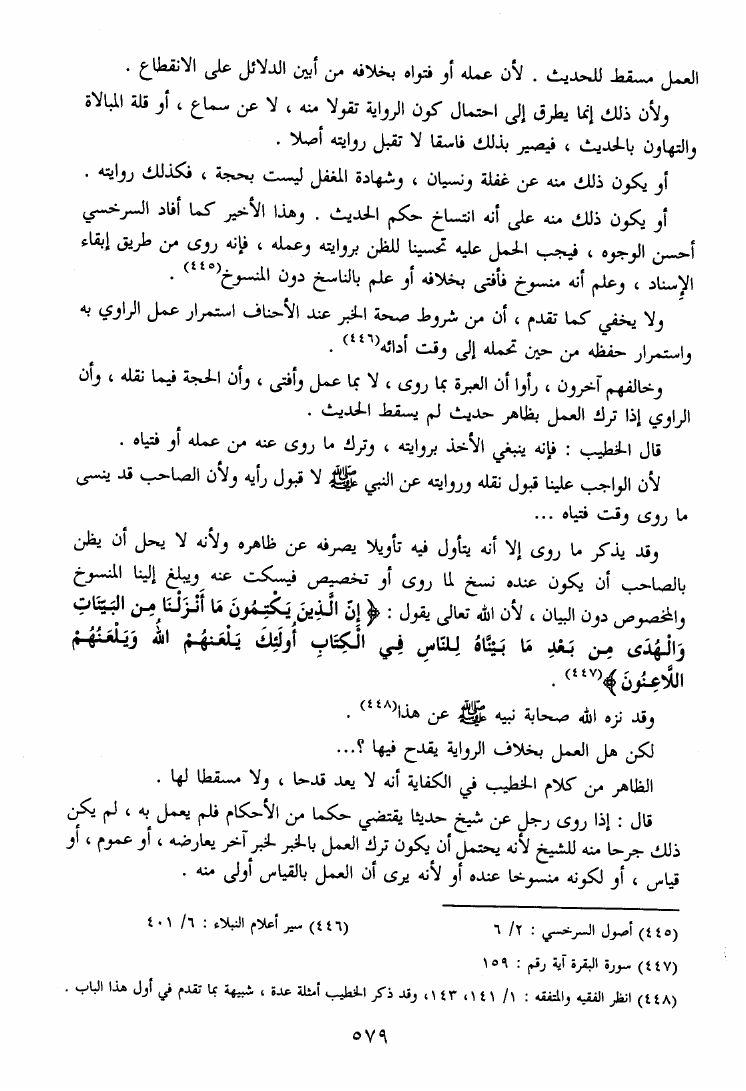 العمل مسقط للحديث . لأن عمله أو فتواه بخلافه من أبين الدلائل على الانقطاع .
ولأن ذلك إنما يطرق إلى احتمال كون الرواية تقولا منه ، لا عن سماع ، أو قلة المبالاة
والتهاون بالحديث ، فيصير بذلك فاسقا لا تقبل روايته أصلا .
أو يكون ذلك منه عن غفلة ونسيان ، وشهادة المغفل ليست بحجة ، فكذلك روايته .
أو يكون ذلك منه على أنه انتساخ حكم الحديث . وهذا الأخير كما أفاد السرخسي
أحسن الوجوه ، فيجب الحمل عليه تحسينا للظن بروايته وعمله ، فإنه روى من طريق إبقاء
الإسناد ، وعلم أنه منسوخ فأفتى بخلافه أو علم بالناسخ دون المنسوخ(٤٤٥) .
ولا يخفي كما تقدم ، أن من شروط صحة الخبر عند الأحناف استمرار عمل الراوي به
واستمرار حفظه من حين تحمله إلى وقت أدائه(٤٤٦) .
وخالفهم آخرون ، رأوا أن العبرة بما روى ، لا بما عمل وأفتى ، وأن الحجة فيما نقله ، وأن
الراوي إذا ترك العمل بظاهر حديث لم يسقط الحديث .
قال الخطيب : فإنه ينبغي الأخذ بروايته ، وترك ما روى عنه من عمله أو فتياه .
لأن الواجب علينا قبول نقله وروايته عن النبي ﷺ لا قبول رأيه ولأن الصاحب قد ينسى
ما روى وقت فتياه ...
وقد يذكر ما روى إلا أنه يتأول فيه تأويلا يصرفه عن ظاهره ولأنه لا يحل أن يظن
بالصاحب أن يكون عنده نسخ لما روى أو تخصيص فيسكت عنه ويبلغ إلينا المنسوخ
والمخصوص دون البيان ، لأن الله تعالى يقول : ﴿ إِنَّ الَّذِينَ يَكْتُمُونَ مَا أَنْزَلْنَا مِنَ البَيِّنَاتِ
وَالْهُدَى مِن بَعْدِ مَا بَيَّنَّاهُ لِلنَّاسِ فِي الْكِتَابِ أُولَئِكَ يَلْعَنُهُمْ اللهُ وَيَلْعَنُهُمْ
اللَّاعِنُونَ ﴾(٤٤٧) .
وقد نزه الله صحابة نبيه ﷺ عن هذا(٤٤٨) .
لكن هل العمل بخلاف الرواية يقدح فيها ؟...
الظاهر من كلام الخطيب في الكفاية أنه لا يعد قدحا ، ولا مسقطا لها .
قال : إذا روى رجل عن شيخ حديثا يقتضي حكما من الأحكام فلم يعمل به ، لم يكن
ذلك جرحا منه للشيخ لأنه يحتمل أن يكون ترك العمل بالخبر لخبر آخر يعارضه ، أو عموم ، أو
قياس ، أو لكونه منسوخا عنده أو لأنه يرى أن العمل بالقياس أولى منه .
(٤٤٥) أصول السرخسي : ٢/ ٦ (٤٤٦) سير أعلام النبلاء : ٦/ ٤٠١
(٤٤٧) سورة البقرة آية رقم : ١٥٩
(٤٤٨) انظر الفقيه والمتفقه : ١/ ١٤١، ١٤٣، وقد ذكر الخطيب أمثلة عدة ، شبيهة بما تقدم في أول هذا الباب .
٥٧٩